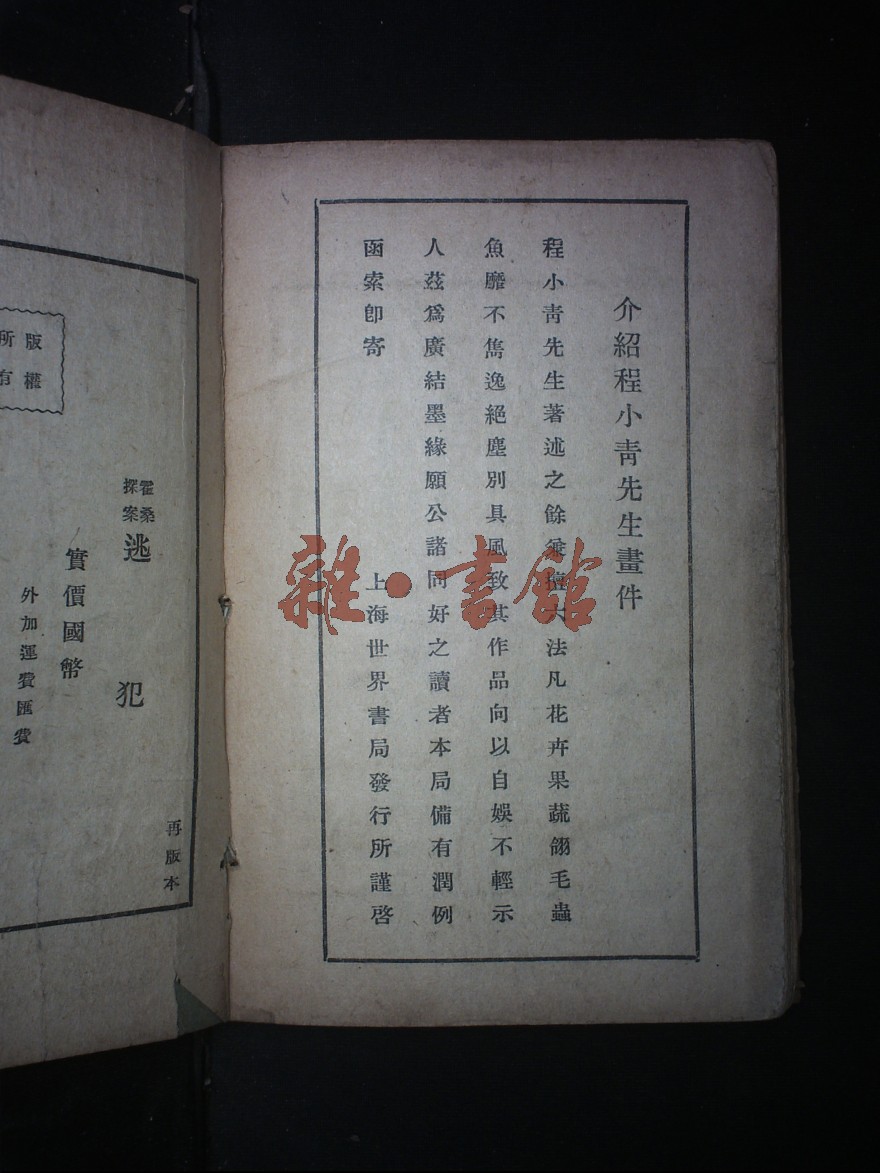 介紹程小青先生畫件
程小青先生著述之餘兼擅六法凡花卉果蔬翎毛蟲
魚靡不雋逸絕塵別具風致其作品向以自娛不輕示
人茲爲廣結墨緣願公諸同好之讀者本局備有潤例
函索卽寄
上海世界書局發行所謹啓
雜·書館
再版本
霍桑
探案
逃犯
實價國幣
外加運費匯費
版權
所有